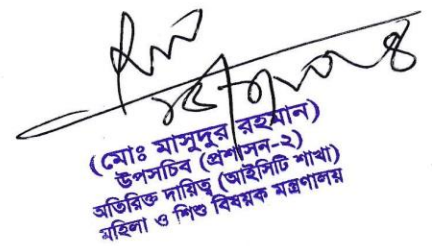 (মোঃ মাসুদুর রহমান)
উপসচিব (প্রশাসন-২)
অতিরিক্ত দায়িত্ব (আইসিটি শাখা)
মহিলা ও শিশু বিষয়ক মন্ত্রণালয়